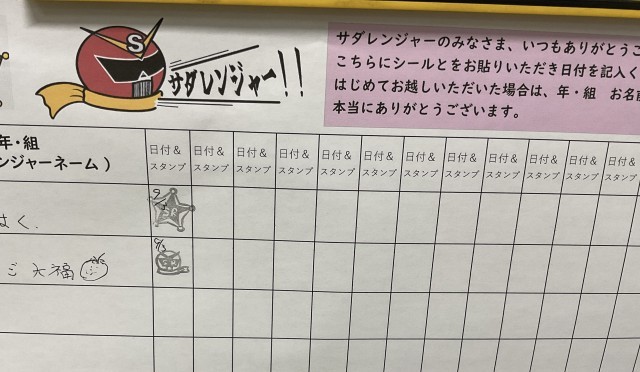 S
サダレンジャー!!
サダレンジャーのみなさま、いつもありがとうご
こちらにシールとをお貼りいただき日付を記入く
はじめてお越しいただいた場合は、年・組 お名前
本当にありがとうございます。
年・組
ンジャーネーム)
日付& 日付& 日付& 日付& 日付& 日付& 日付& 日付& 日付& 日付& 日付& 日付&
スタンプ スタンプ スタンプ スタンプ スタンプ スタンプ スタンプ スタンプ スタンプ スタンプ スタンプ スタンプ
はく.
大福